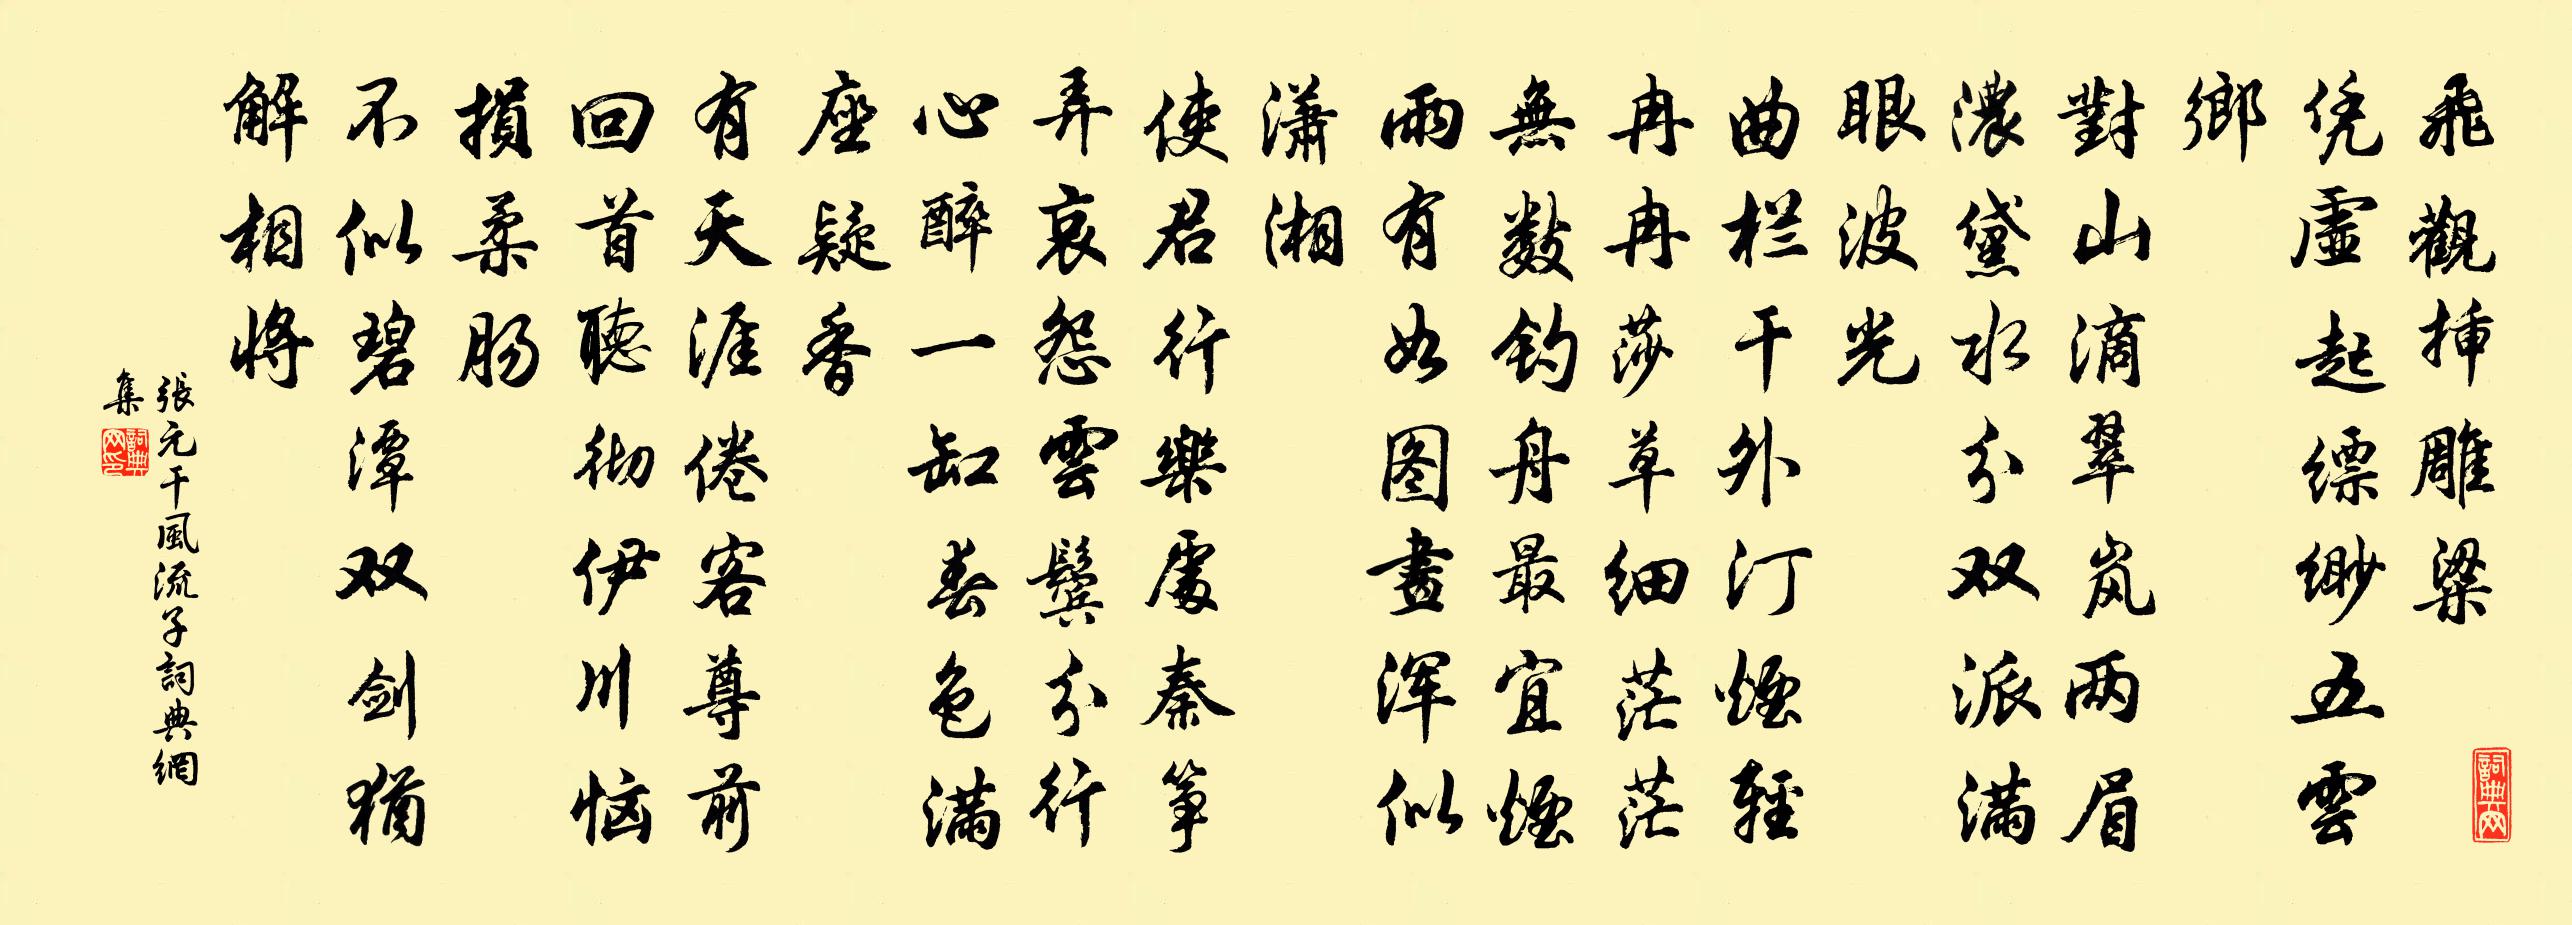 飛觀挿雕梁
凭虛起縹緲五雲
鄉
對山滴翠岚两眉
濃黛水分双派滿
眼波光
曲栏干外汀煙輕
冉冉莎草细茫茫
無数钓舟最宜煙
雨有如图畫浑似
瀟湘
使君行樂處秦筝
弄哀怨雲鬓分行
心醉一缸春色滿
座疑香
有天涯倦客尊前
回首聽彻伊川恼
損柔肠
不似碧潭双剑猶
解相将
張元干風流子詞典網
集
詞典网
詞典网印